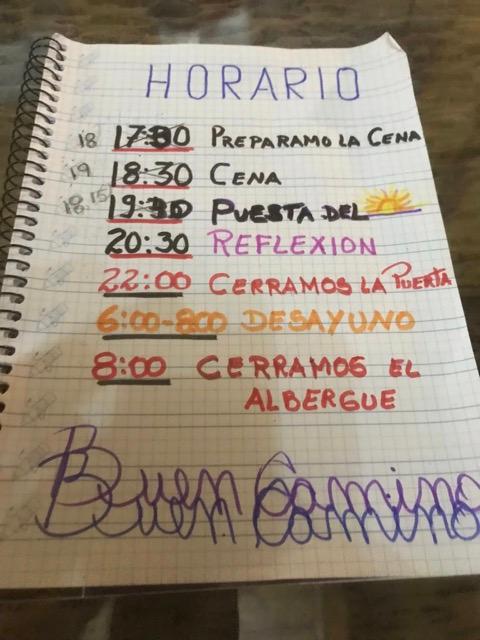 HORARIO
18 17:30 PREPARAMO LA CENA
19 18:30 CENA
18.15 19:30 PUESTA DEL
20:30 REFLEXION
22:00 CERRAMOS LA PUERTA
6:00-800 DESAYUNO
8:00 CERRAMOS EL
ALBERGUE
Buen Camino